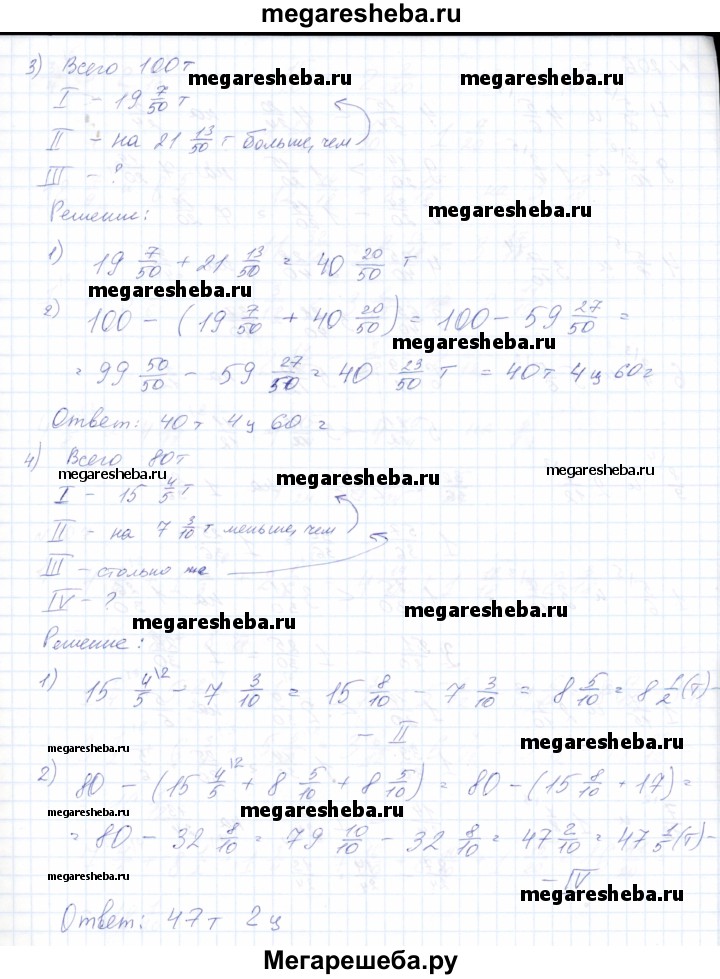 megaresheba.ru
3) Всего 100 т
megaresheba.ru megaresheba.ru
I – 19 7/50 т
II – на 21 13/50 т больше, чем
III – ?
Решение:
megaresheba.ru
1) 19 7/50 + 21 13/50 = 40 20/50 т
megaresheba.ru
2) 100 – (19 7/50 + 40 20/50) = 100 – 59 27/50 =
megaresheba.ru
= 99 50/50 – 59 27/50 = 40 23/50 т = 40 т 4 ц 60 г
Ответ: 40 т 4 ц 60 г
4) Всего 80 т
megaresheba.ru megaresheba.ru megaresheba.ru
I – 15 4/5 т
II – на 7 3/10 т меньше, чем
III – столько же
IV – ?
megaresheba.ru megaresheba.ru
Решение:
1) 15 4/5\2 – 7 3/10 = 15 8/10 – 7 3/10 = 8 5/10 = 8 1/2 (т) –
– II
megaresheba.ru megaresheba.ru
2) 80 – (15 4/5\2 + 8 5/10 + 8 5/10) = 80 – (15 8/10 + 17) =
megaresheba.ru megaresheba.ru
= 80 – 32 8/10 = 79 10/10 – 32 8/10 = 47 2/10 = 47 1/5 (т) –
– IV
megaresheba.ru megaresheba.ru
Ответ: 47 т 2 ц
Мегарешеба.ру